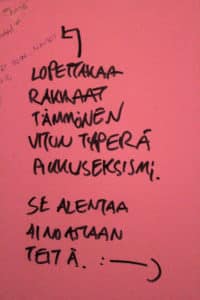 LOPETTAKAA
RAKKAAT
TÄMMÖNEN
VITUN TYPERÄ
SE ALENTAA
AINOASTAAN
TEITÄ. :—)